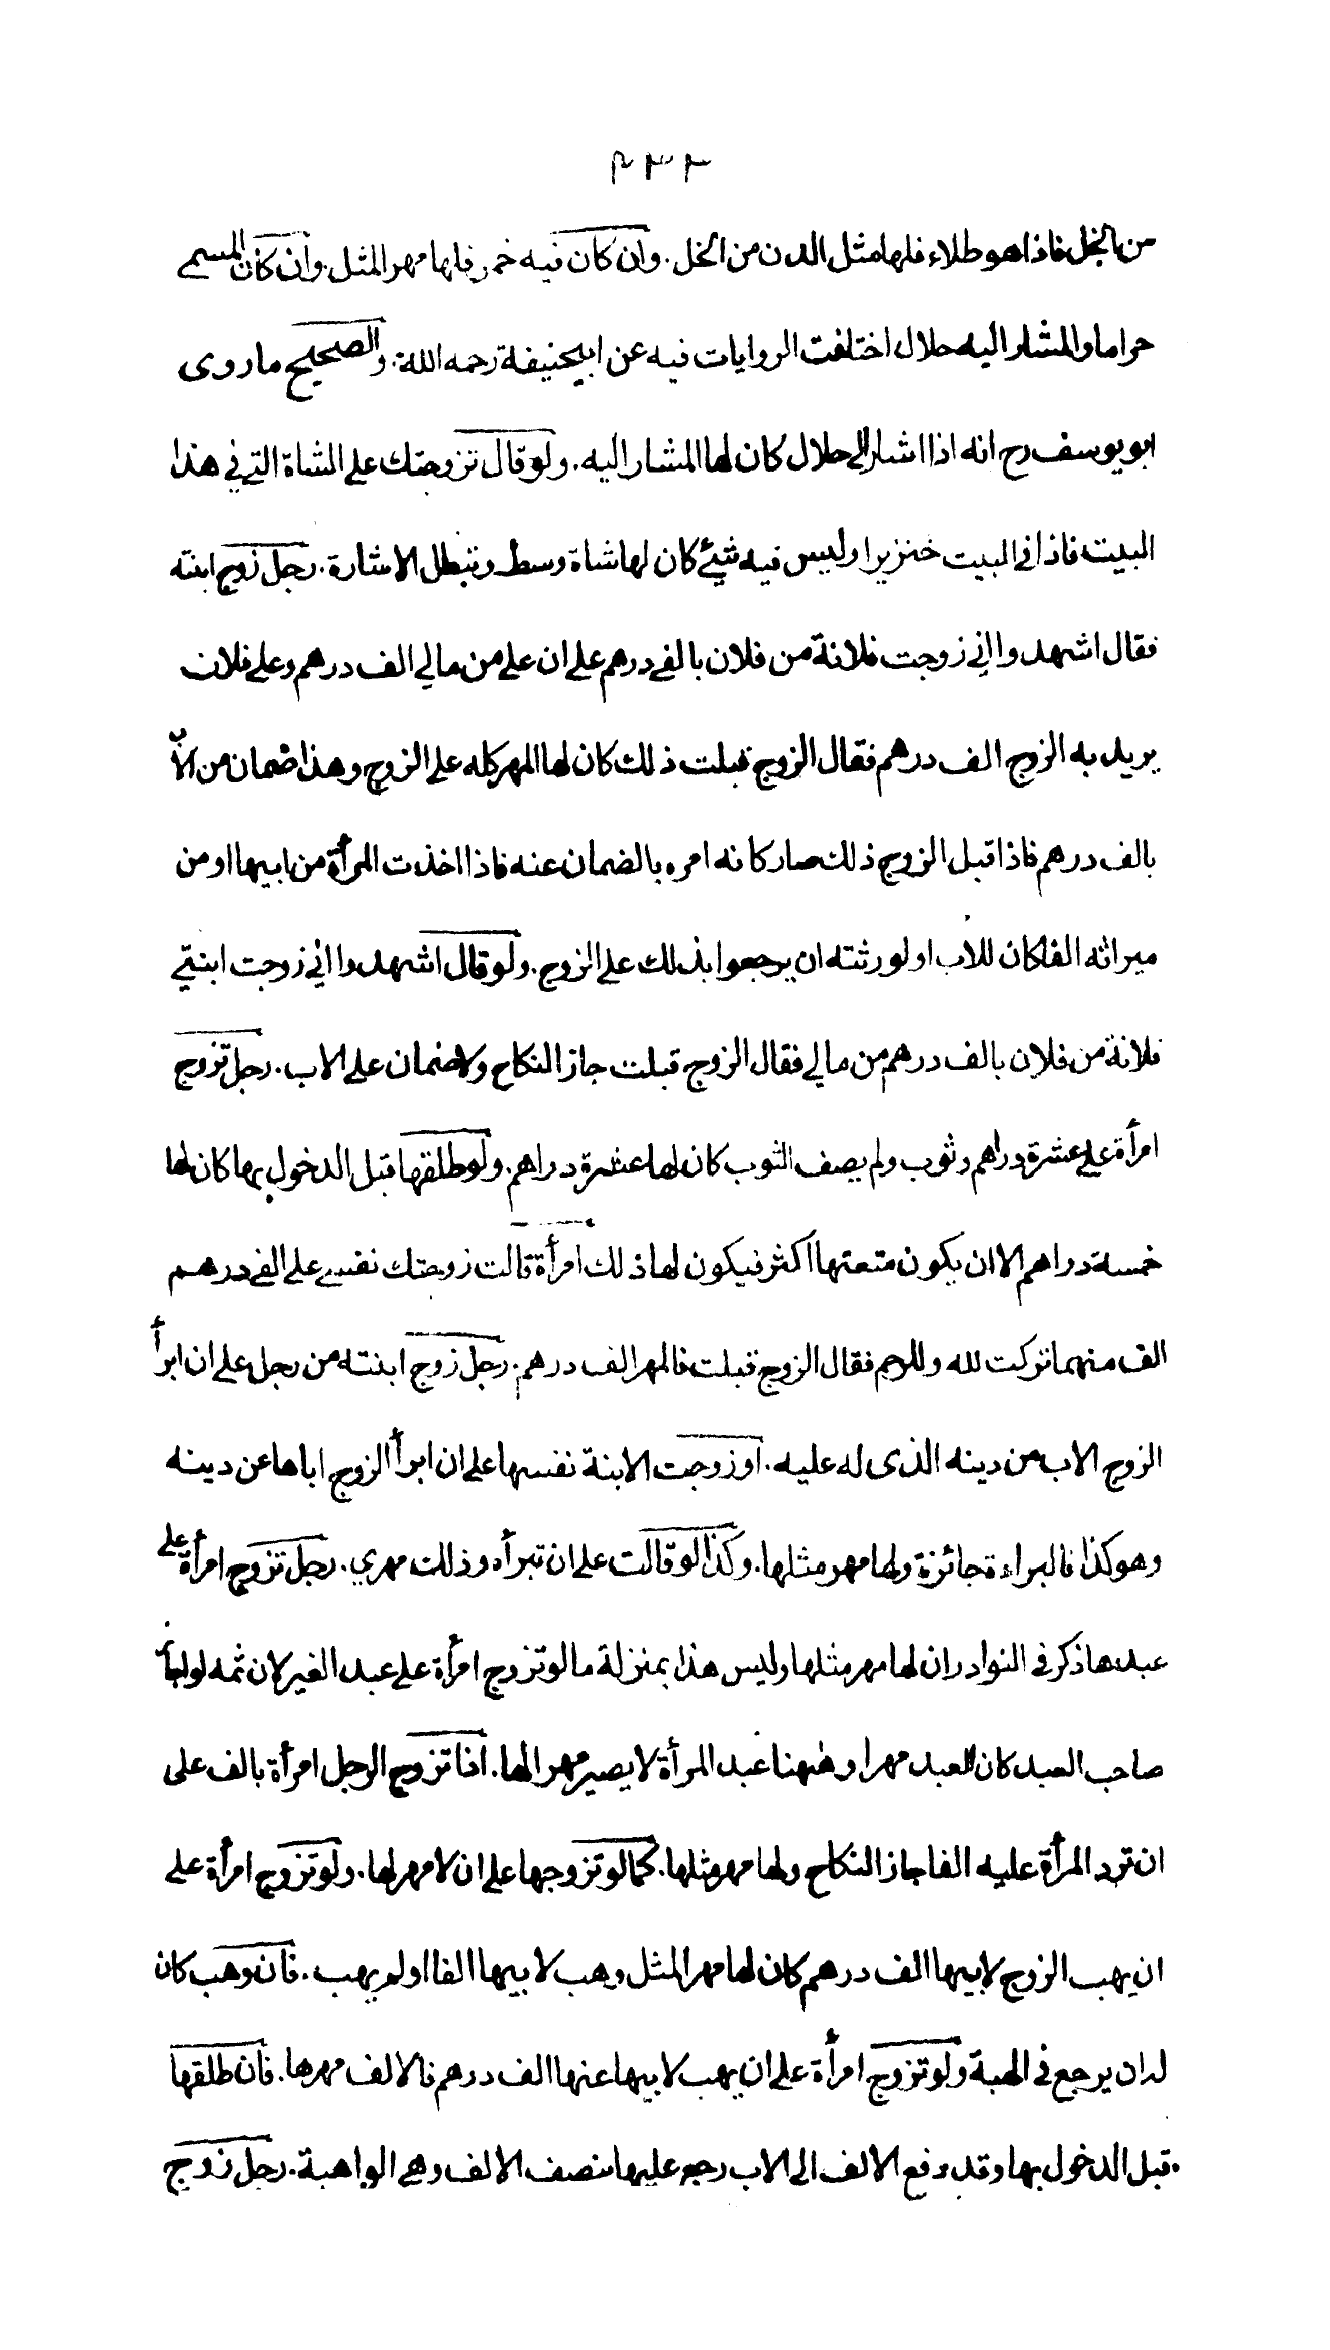 ٢٣٢
من الخل فاذا هو طلاء فلها مثل الدن من الخل. وان كان فيه خمر فلها مهر المثل. وان كان المسمى
حراما والمشار اليه حلال اختلفت الروايات فيه عن ابيحنيفة رحمه الله. والصحيح ما روى
ابو يوسف رح انه اذا اشار الى حلال كان لها المشار اليه. ولو قال تزوجتك على الشاة التي في هذا
البيت فاذا في البيت خنزير او ليس فيه شيئ كان لها شاة وسط وتبطل الاشارة. رجل زوج ابنته
فقال اشهدوا اني زوجت فلانة من فلان بالفي درهم على ان علي من مالي الف درهم وعلى فلان
يريد به الزوج الف درهم فقال الزوج قبلت ذلك كان لها المهر كله على الزوج وهذا ضمان من الاب
بالف درهم فاذا قبل الزوج ذلك صار كانه امره بالضمان عنه فاذا اخذت المرأة من ابيها او من
ميراثه الفا كان للاب او لورثته ان يرجعوا بذلك على الزوج. ولو قال اشهدوا اني زوجت ابنتي
فلانة من فلان بالف درهم من مالي فقال الزوج قبلت جاز النكاح ولا ضمان على الاب. رجل تزوج
امرأة على عشرة دراهم وثوب ولم يصف الثوب كان لها عشرة دراهم. ولو طلقها قبل الدخول بها كان لها
خمسة دراهم الا ان يكون متعتها اكثر فيكون لها ذلك امرأة قالت زوجتك نفسي على الفي درهم
الف منهما تركت لله وللرحم فقال الزوج قبلت فالمهر الف درهم. رجل زوج ابنته من رجل على ان ابرأ
الزوج الاب من دينه الذى له عليه. او زوجت الابنة نفسها على ان ابرأ الزوج اباها عن دينه
وهو كذا فالبراءة جائزة ولها مهر مثلها. وكذا لو قالت على ان تبرأه وذلك مهري. رجل تزوج امرأة على
عبدها ذكر في النوادر ان لها مهر مثلها وليس هذا بمنزلة ما لو تزوج امرأة على عبد الغير لان ثمه لو اجاز
صاحب العبد كان العبد مهرا وههنا عبد المرأة لا يصير مهرا لها. اذا تزوج الرجل امرأة بالف على
ان ترد المرأة عليه الفا جاز النكاح ولها مهر مثلها. كما لو تزوجها على ان لا مهر لها. ولو تزوج امرأة على
ان يهب الزوج لابيها الف درهم كان لها مهر المثل وهب لابيها الفا او لم يهب. فان وهب كان
له ان يرجع في الهبة ولو تزوج امرأة على ان يهب لابيها عنها الف درهم فالالف مهرها. فان طلقها
قبل الدخول بها وقد دفع الالف الى الاب رجع عليها بنصف الالف وهي الواهبة. رجل زوج